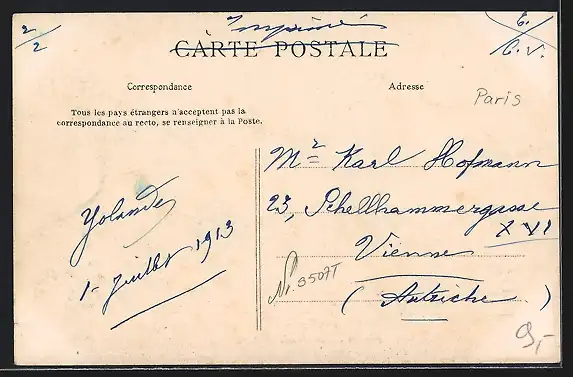 2/2
Imprimés
E.
C.V.
CARTE POSTALE
Correspondance
Adresse
Paris
Tous les pays étrangers n'acceptent pas la
correspondance au recto, se renseigner à la Poste.
Yolande
1- Juillet 1913
Mr Karl Hofmann
23, Schellhammergasse
XVI
Vienne
(Autriche)
9,-